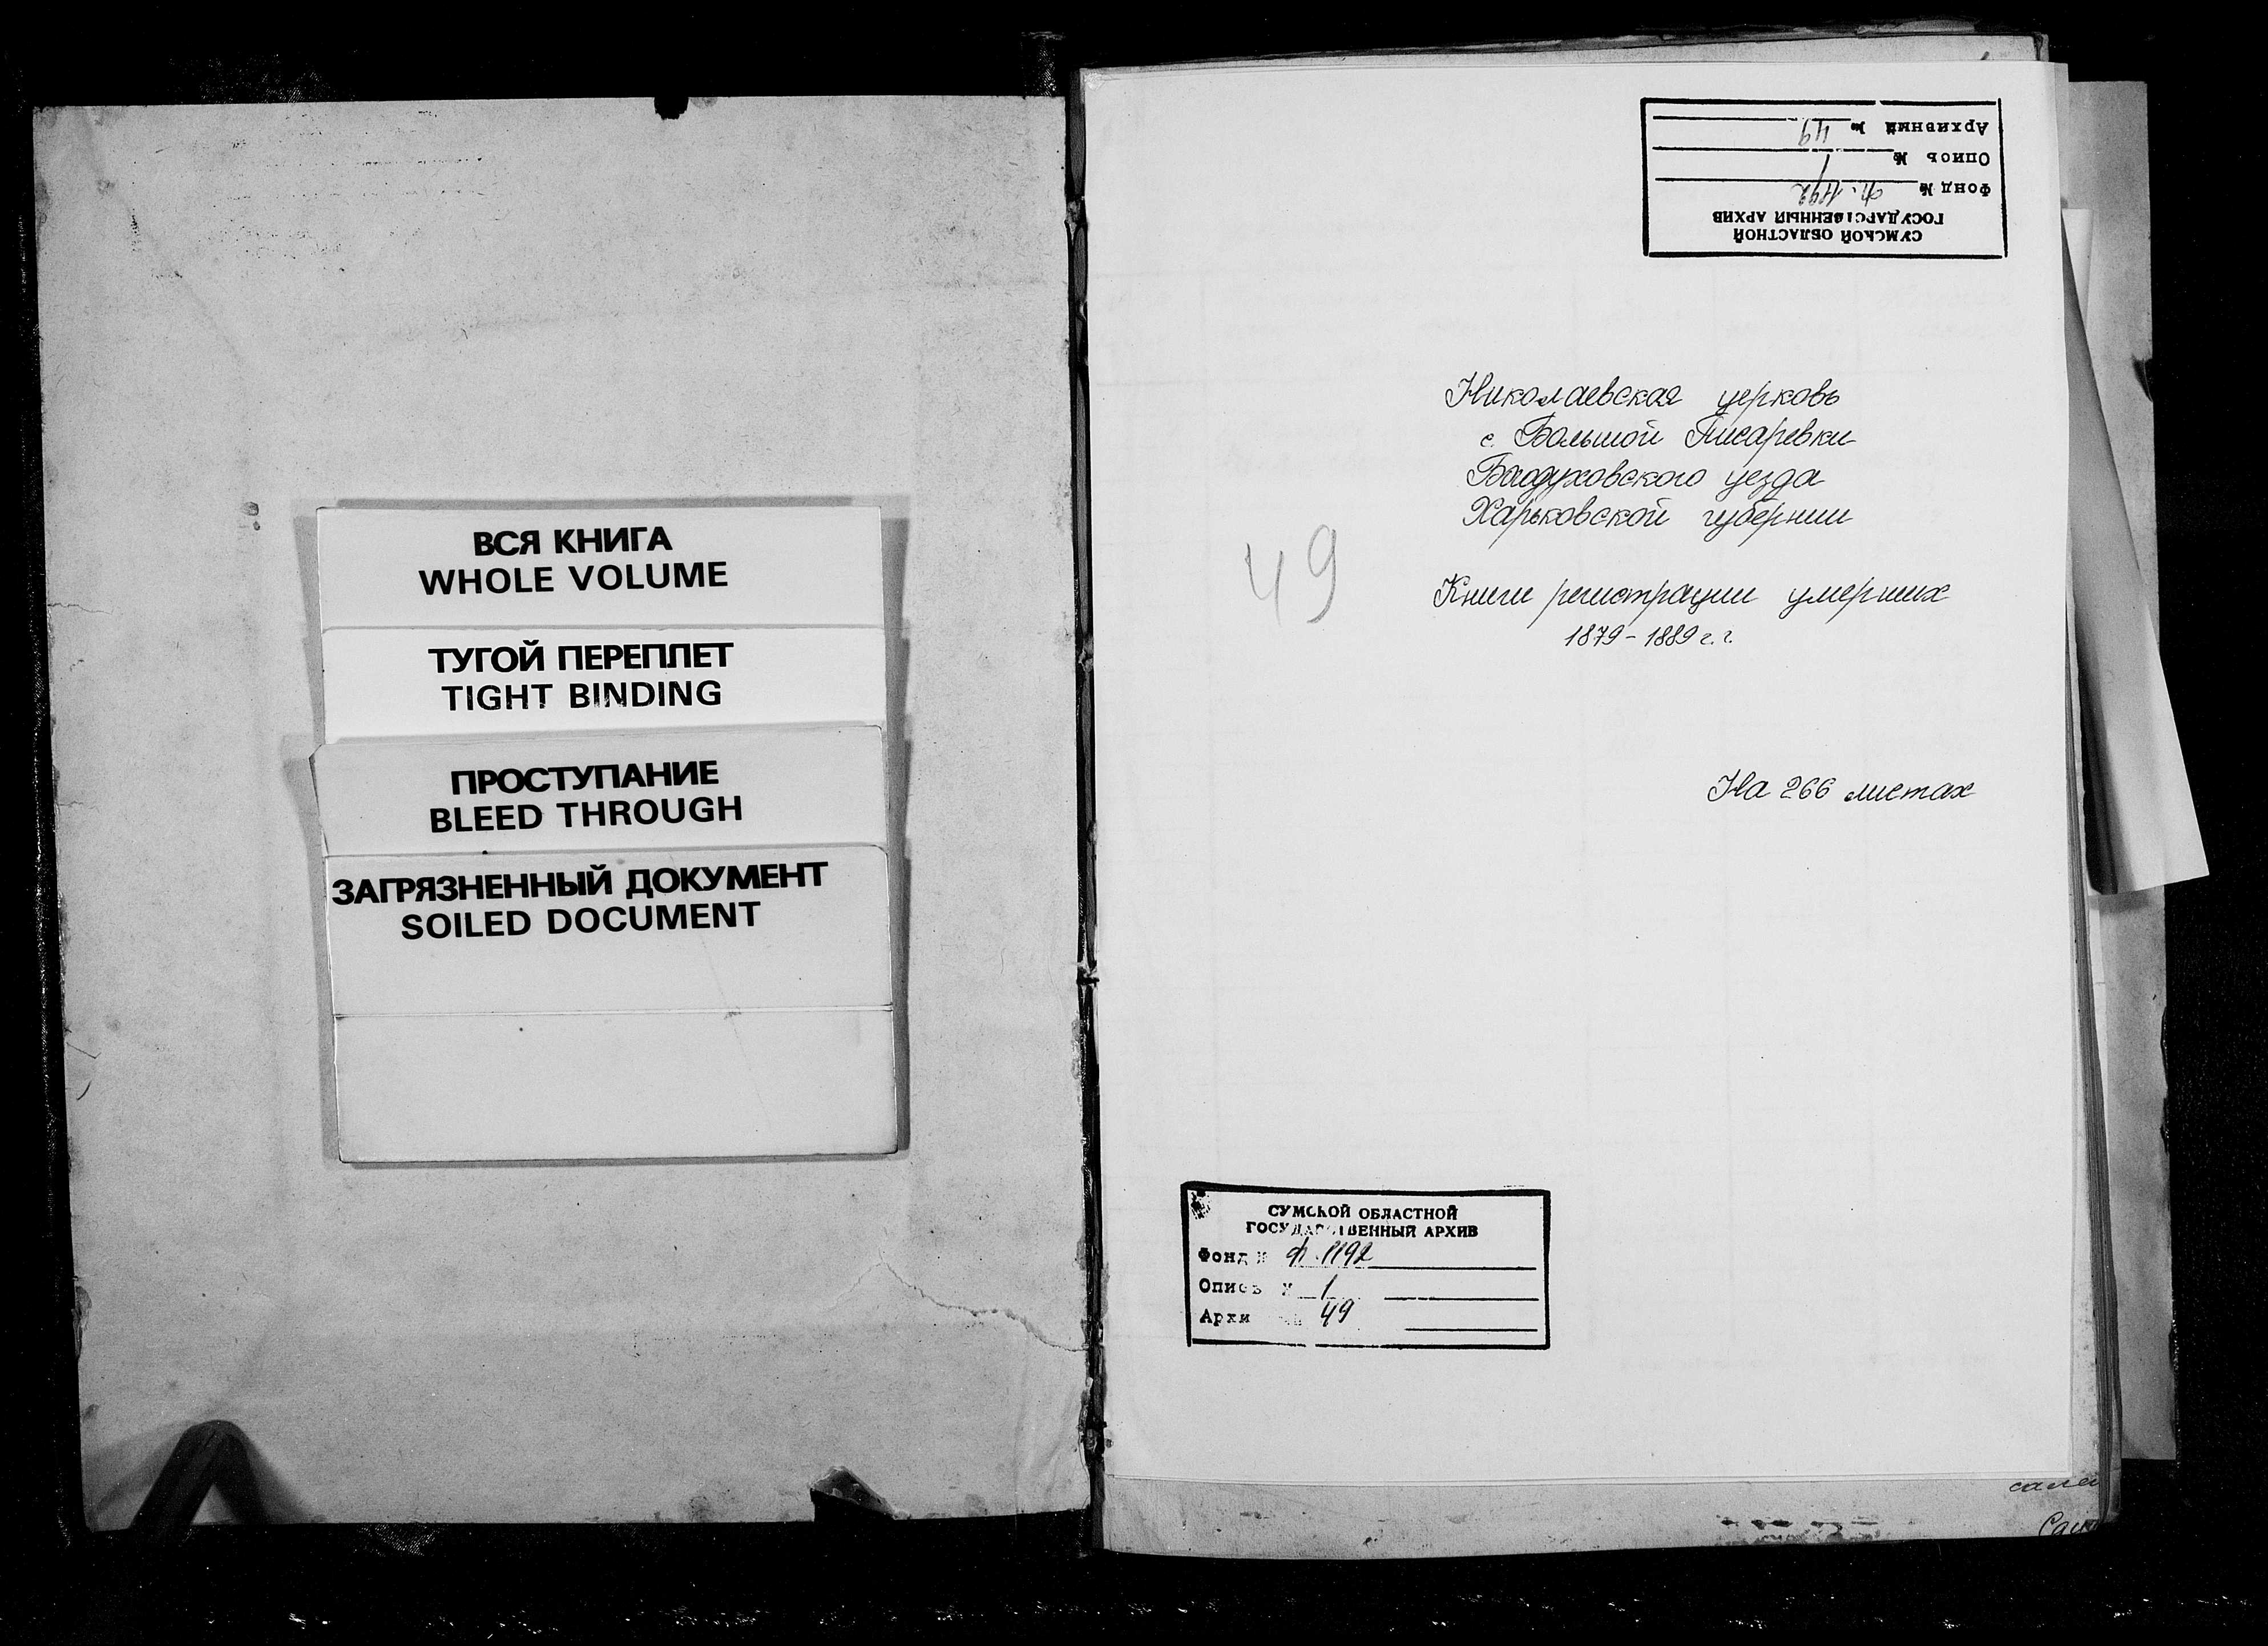 ВСЯ КНИГА
WHOLE VOLUME
ТУГОЙ ПЕРЕПЛЕТ
TIGHT BINDING
ПРОСТУПАНИЕ
BLEED THROUGH
ЗАГРЯЗНЕННЫЙ ДОКУМЕНТ
SOILED DOCUMENT
СУМСКОЙ ОБЛАСТНОЙ
ГОСУДАРСТВЕННЫЙ АРХИВ
Фонд № ф. 1192
Опись № 1
Архивный № 49
Николаевская церковь
с. Большой Писаревки
Богодуховского уезда
Харьковской губернии
49
Книги регистрации умерших
1879-1889 г.г.
На 266 листах
СУМСКОЙ ОБЛАСТНОЙ
ГОСУДАРСТВЕННЫЙ АРХИВ
Фонд № ф. 1192
Опись № 1
Архи 49